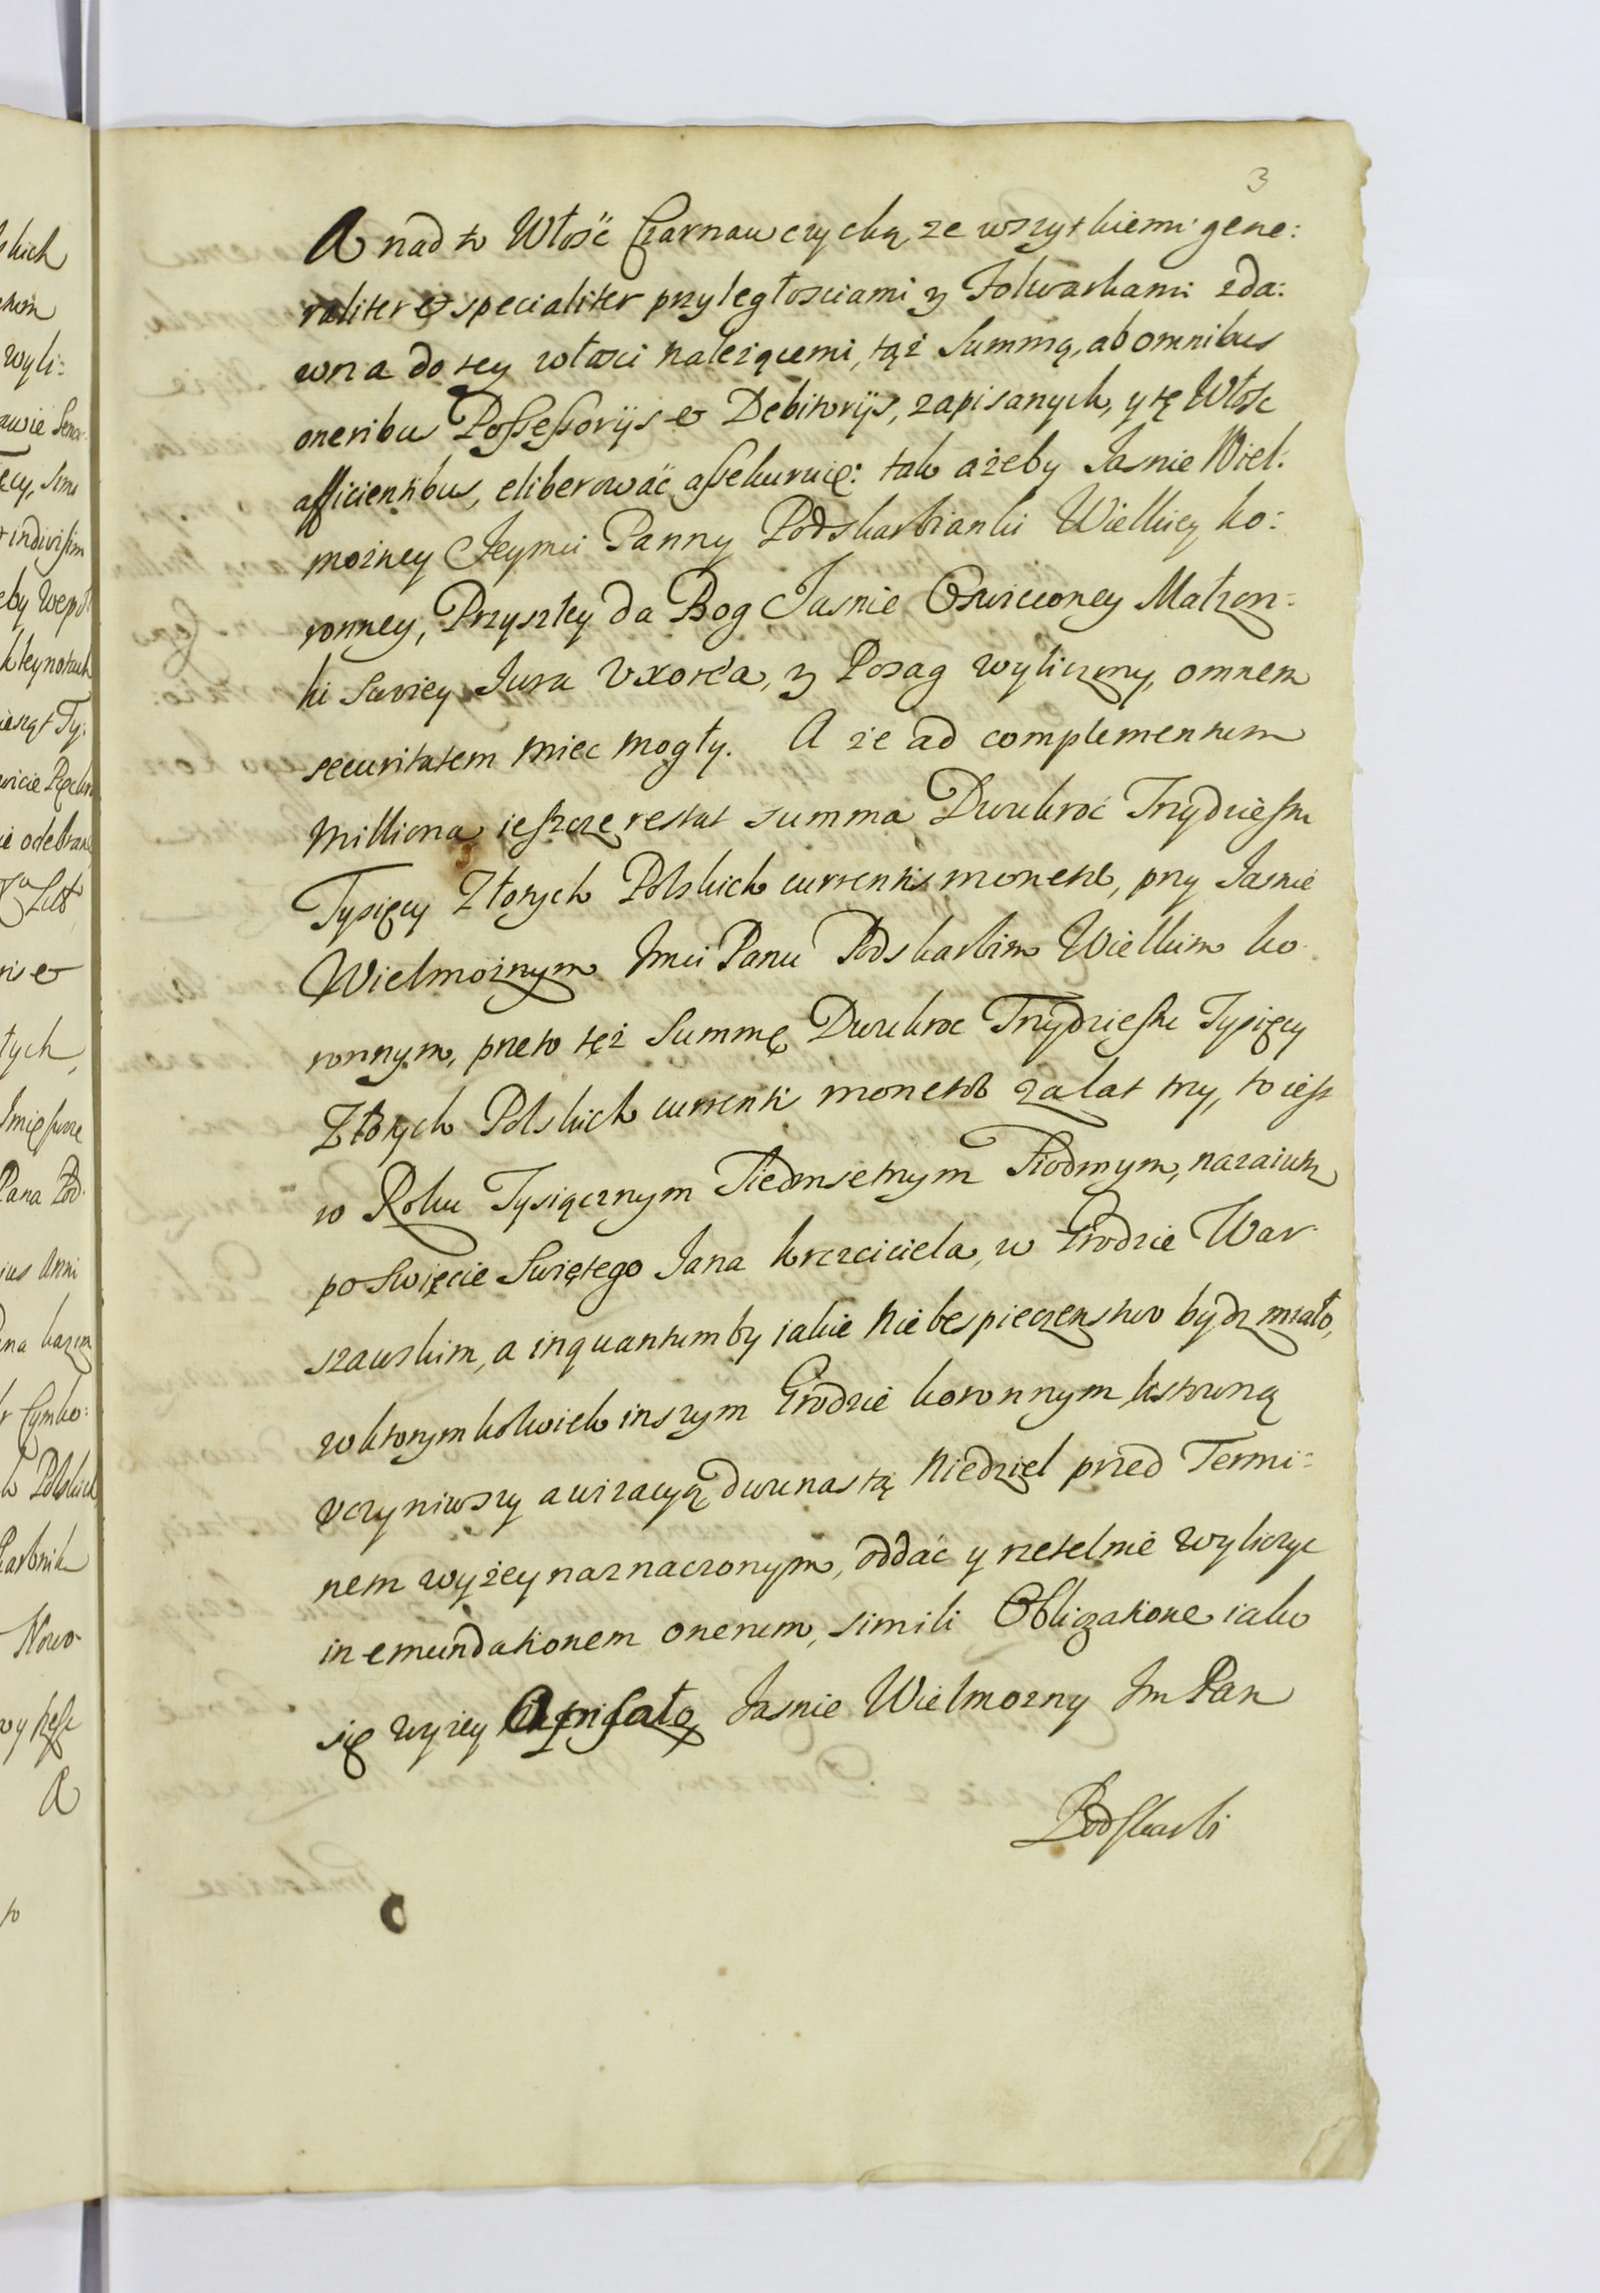 3
A nad to Włość Czarnawczycką, ze wszytkiemi gene:
raliter et specialiter przyległosciami y Folwarkami zda:
wna do tey włosci należącemi, tąż Summą, ab omnibus
oneribus Possessorijs et Debitorijs, zapisanych, y tę Włosc
afficientibus, eliberować assekuruię: tak ażeby Jasnie Wiel:
możney Jeymci Panny Podskarbianki Wielkiey ko:
ronney, Przyszłey da Bog Jasnie Oswieconey Małżon:
ki Swoiey Jura Vxorea, y Posag wyliczony, omnem
securitatem miec mogły. A że ad complementum
Milliona ieszcze restat summa Dwukroć Trzydziestu
Tysięcy Złotych Polskich currentis monetæ, przy Jasnie
Wielmożnym Jmci Panu Podskarbim Wielkim ko:
ronnym, przeto też Summę Dwukroc Trzydziestu Tysięcy
Złotych Polskich currentis monetæ za lat trzy, to iest
w Roku Tysiącznym Siedmsetnym Siodmym, nazaiutrz
po Swięcie Swiętego Jana krzciciela, w Grodzie War
szawskim, a inquantum by iakie niebespieczenstwo bydz miało,
w ktorymkolwiek inszym Grodzie koronnym listowną
vczyniwszy awizacyą dwunastą Niedziel przed Termi:
nem wyżey naznaczonym, oddać y rzetelnie wyliczyc
in emundationem onerum, simili Obligatione iako
się wyżey opisało Jasnie Wielmozny Jm Pan
Podskarbi